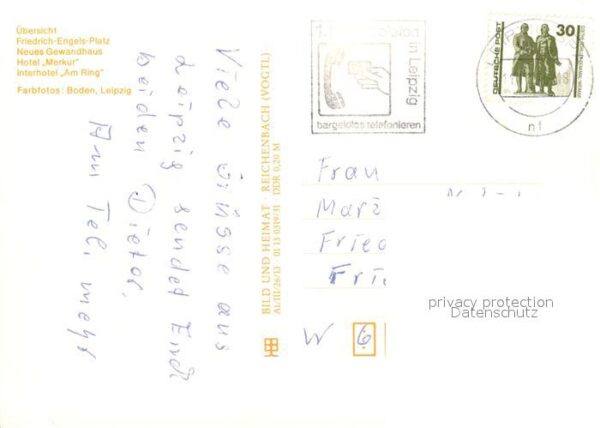 Übersicht
Friedrich-Engels-Platz
Neues Gewandhaus
Hotel „Merkur"
Interhotel „Am Ring"
Farbfotos: Boden, Leipzig
Viele Grüsse aus
Leipzig sendet Euch
beiden Dieter.
Am Tel. mehr
BILD UND HEIMAT · REICHENBACH (VOGTL)
A1/III/26/13 · 01 13 0319/31 DDR 0,20 M
1.
in Leipzig
bargeldlos telefonieren
DEUTSCHE POST
30
Frau
W 6
privacy protection
Datenschutz